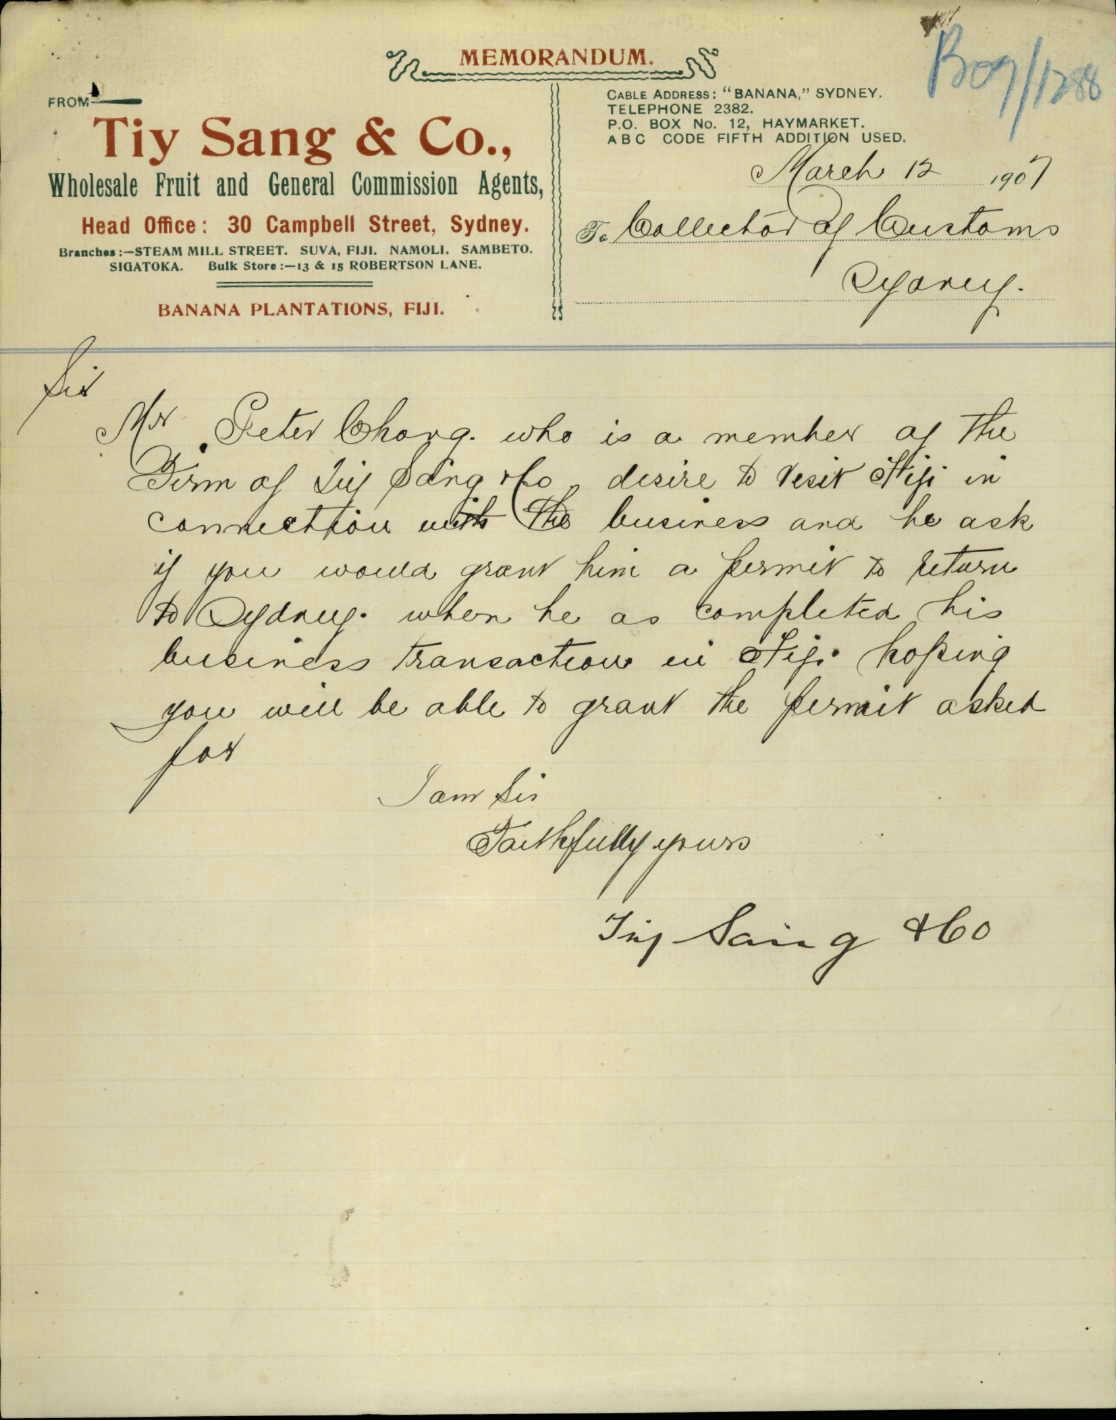 MEMORANDUM.
B07/1288
FROM
Tiy Sang & Co.,
Wholesale Fruit and General Commission Agents,
Head Office: 30 Campbell Street, Sydney.
Branches:—STEAM MILL STREET. SUVA, FIJI. NAMOLI. SAMBETO.
SIGATOKA. Bulk Store:—13 & 15 ROBERTSON LANE.
BANANA PLANTATIONS, FIJI.
CABLE ADDRESS: "BANANA," SYDNEY.
TELEPHONE 2382.
P.O. BOX No. 12, HAYMARKET.
ABC CODE FIFTH ADDITION USED.
March 12 1907
To Collector of Customs
Sydney.
Sir
Mr Peter Chong. who is a member of the
Firm of Tiy Sang & Co desire to visit Fiji in
connection with the business and he ask
if you would grant him a permit to return
to Sydney. when he as completed his
business transaction in Fiji. hoping
you will be able to grant the permit asked
for
I am Sir
Faithfully yours
Tiy Sang & Co